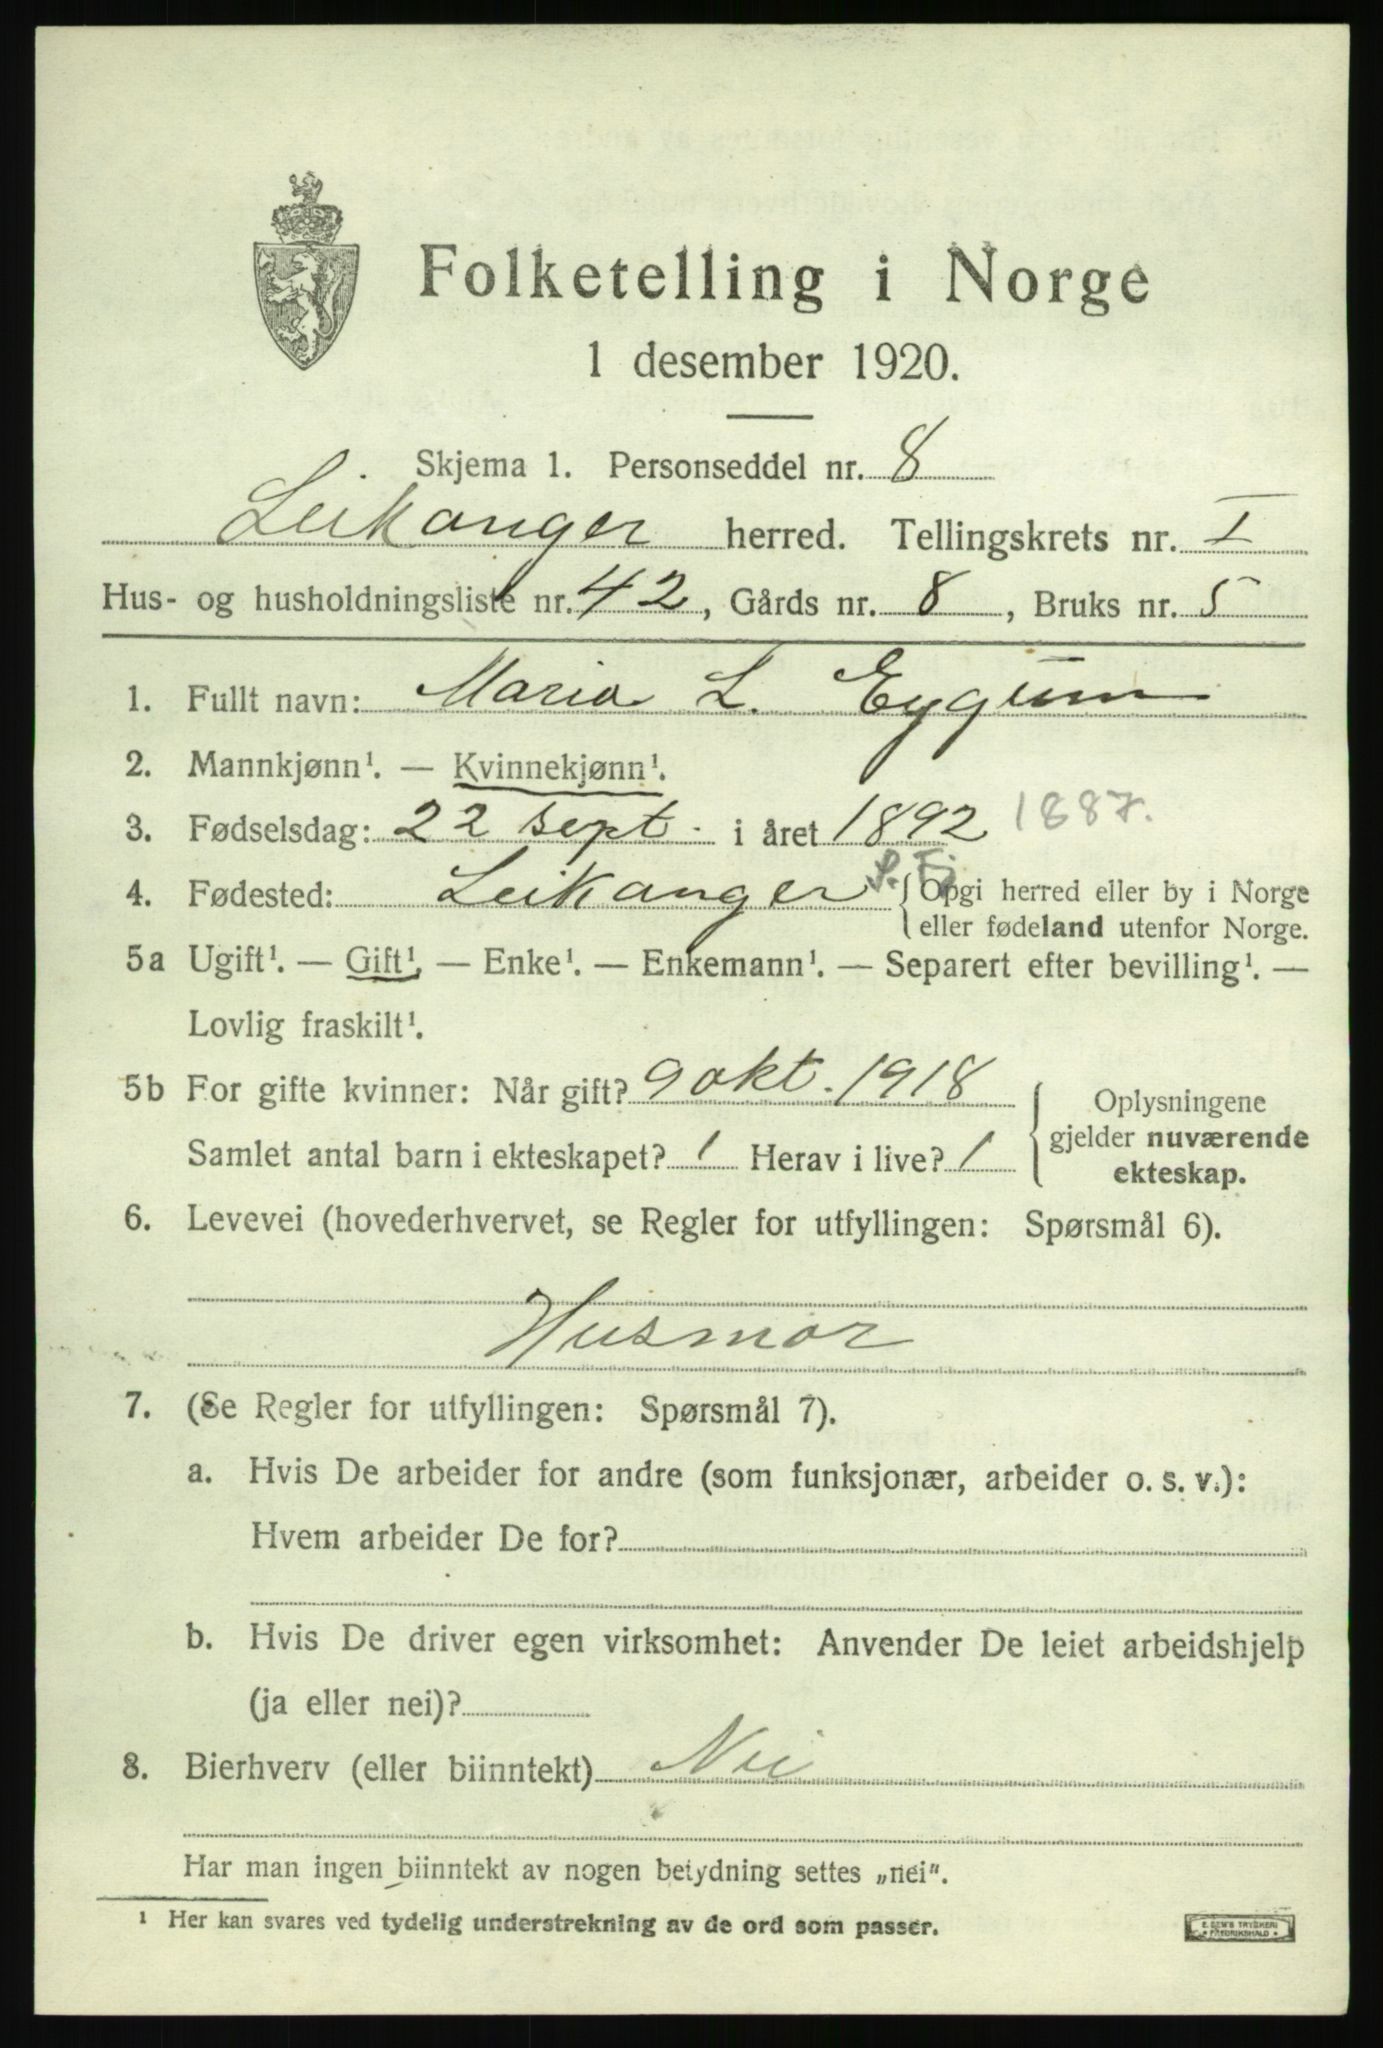 Folketelling i Norge
1 desember 1920.
Skjema 1. Personseddel nr. 8
Leikanger herred. Tellingskrets nr. I
Hus- og husholdningsliste nr. 42, Gårds nr. 8, Bruks nr. 5
1. Fullt navn: Maria L. Eggum
2. Mannkjønn¹. — Kvinnekjønn¹.
3. Fødselsdag: 22 sept. i året 1892 1887.
4. Fødested: Leikanger S. Fj {Opgi herred eller by i Norge
eller fødeland utenfor Norge.
5a Ugift¹. — Gift¹, — Enke¹. — Enkemann¹. — Separert efter bevilling¹. —
Lovlig fraskilt¹.
5b For gifte kvinner: Når gift? 9 okt. 1918
Samlet antal barn i ekteskapet? 1 Herav i live? 1
Oplysningene
gjelder nuværende
ekteskap.
6. Levevei (hovederhvervet, se Regler for utfyllingen: Spørsmål 6).
Husmor
7. (Se Regler for utfyllingen: Spørsmål 7).
a. Hvis De arbeider for andre (som funksjonær, arbeider o. s. v.):
Hvem arbeider De for?
b. Hvis De driver egen virksomhet: Anvender De leiet arbeidshjelp
(ja eller nei)?
8. Bierhverv (eller biinntekt) Nei
Har man ingen biinntekt av nogen betydning settes „nei".
¹ Her kan svares ved tydelig understrekning av de ord som passer.
E. SEM'S TRYKKERI
• FREDRIKSHALD •